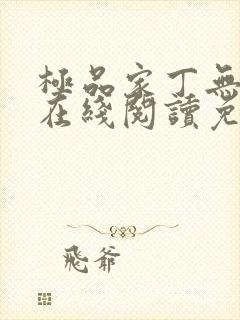 極品家丁無
在綫閱讀免
飛爺